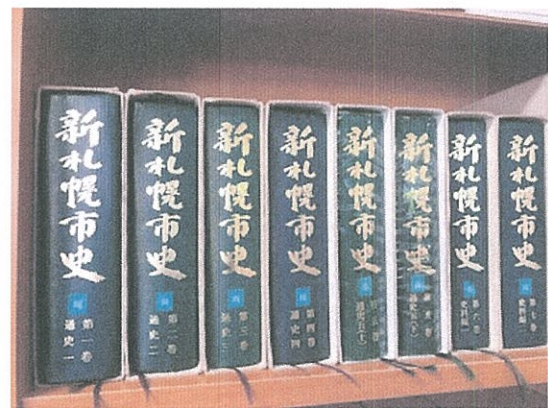 新札幌市史
第一巻
通史一
新札幌市史
第二巻
通史二
新札幌市史
第三巻
通史三
新札幌市史
第四巻
通史四
新札幌市史
第五巻
通史五(上)
新札幌市史
第五巻
通史五(下)
新札幌市史
第六巻
史料編一
新札幌市史
第七巻
史料編二